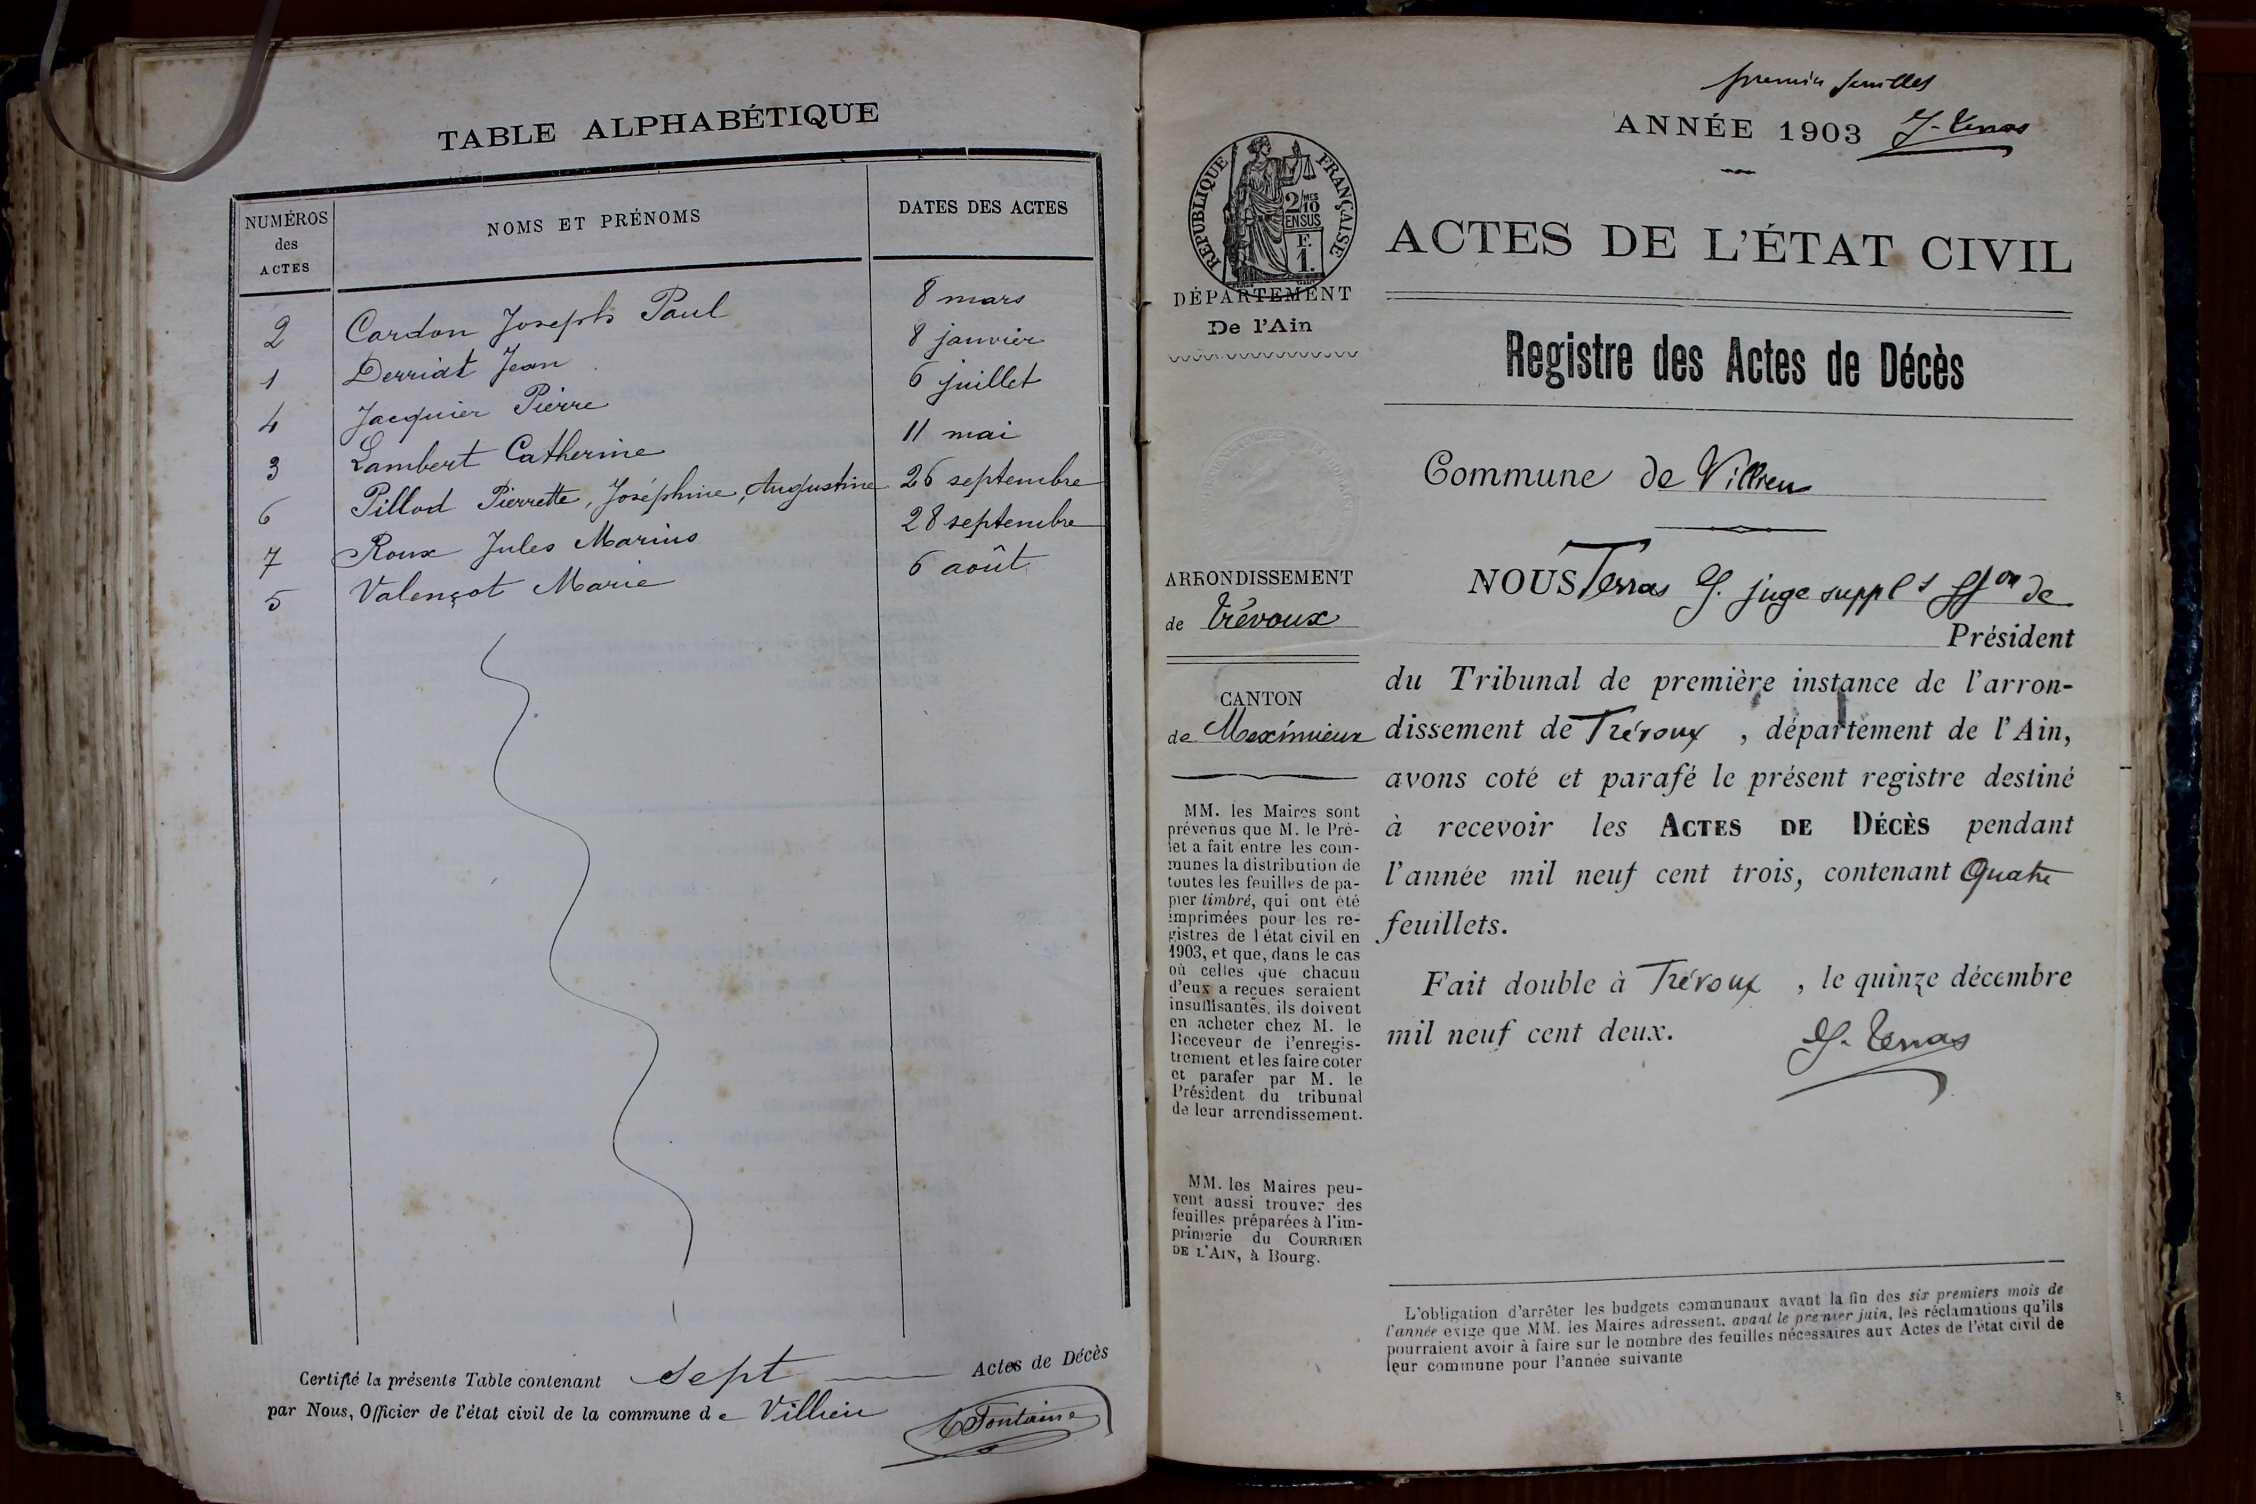 TABLE ALPHABÉTIQUE
NUMÉROS des ACTES
NOMS ET PRÉNOMS
DATES DES ACTES
2 Cardon Joseph Paul 8 mars
1 Derriat Jean 8 janvier
4 Jacquier Pierre 6 juillet
3 Lambert Catherine 11 mai
6 Pillod Pierrette, Joséphine, Augustine 26 septembre
7 Roux Jules Marius 28 septembre
5 Valençot Marie 6 août
Certifié la présente Table contenant sept Actes de Décès
par Nous, Officier de l'état civil de la commune de Villieu
Fontaine
premier
ANNÉE 1903
RÉPUBLIQUE FRANÇAISE
2/10 MES
EN SUS
F.
1.
DÉPARTEMENT
De l'Ain
ARRONDISSEMENT
de Trévoux
CANTON
de Meximieux
MM. les Maires sont
prévenus que M. le Pré-
fet a fait entre les com-
munes la distribution de
toutes les feuilles de pa-
pier timbré, qui ont été
imprimées pour les re-
gistres de l'état civil en
1903, et que, dans le cas
où celles que chacun
d'eux a reçues seraient
insuffisantes, ils doivent
en acheter chez M. le
Receveur de l'enregis-
trement et les faire coter
et parafer par M. le
Président du tribunal
de leur arrondissement.
MM. les Maires peu-
vent aussi trouver des
feuilles préparées à l'im-
primerie du COURRIER
DE L'AIN, à Bourg.
ACTES DE L'ÉTAT CIVIL
Registre des Actes de Décès
Commune de Villieu
NOUS Terras G. juge suppl t ff on de
Président
du Tribunal de première instance de l'arron-
dissement de Trévoux, département de l'Ain,
avons coté et parafé le présent registre destiné
à recevoir les ACTES DE DÉCÈS pendant
l'année mil neuf cent trois, contenant Quatre
feuillets.
Fait double à Trévoux, le quinze décembre
mil neuf cent deux.
G. Terras
L'obligation d'arrêter les budgets communaux avant la fin des six premiers mois de
l'année exige que MM. les Maires adressent, avant le premier juin, les réclamations qu'ils
pourraient avoir à faire sur le nombre des feuilles nécessaires aux Actes de l'état civil de
leur commune pour l'année suivante